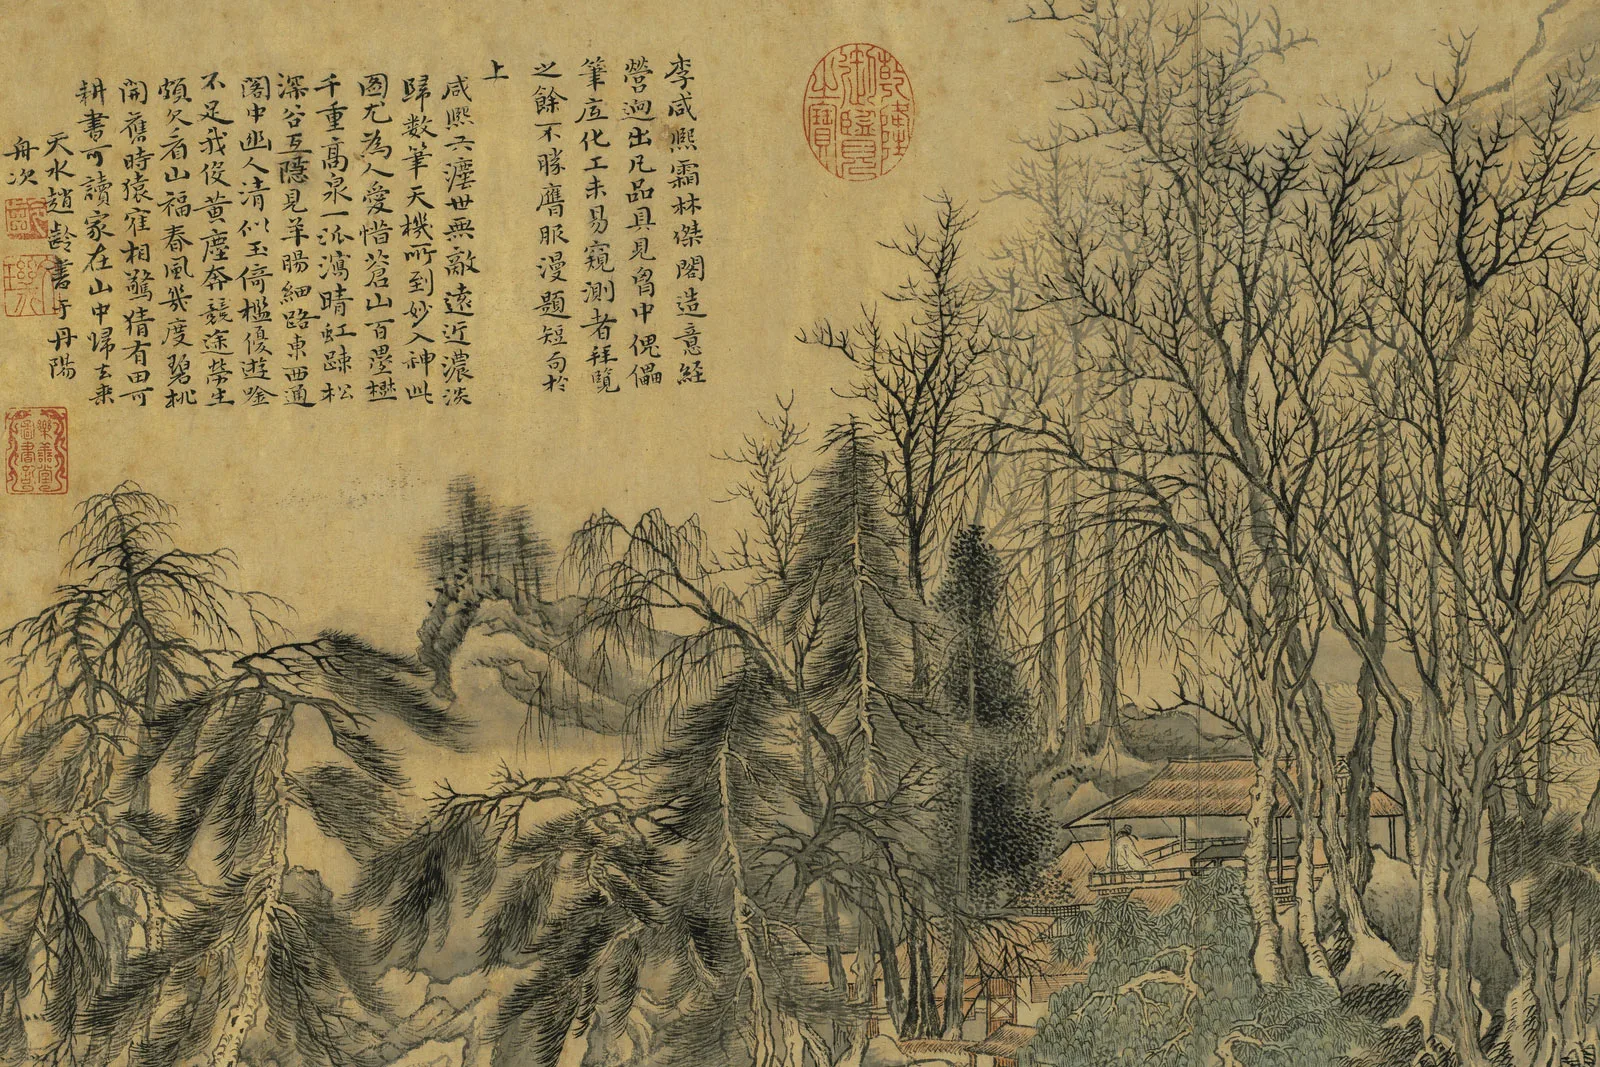 乾隆御覽之寶
李咸熙霜林傑閣造意經
營迥出凡品具見胷中傀儡
筆化工未易窺測者拜覽
之餘不勝膺服漫題短句於
上
咸熙世無敵遠近濃淡
歸数筆天機所到妙入神此
圖尤為人愛惜蒼山百疊
千重高泉一派瀉晴虹踈松
深谷互隱見羊腸細路東西通
閣中幽人清似玉倚檻優遊唫
不足我役黃塵奔競途勞生
頗欠看山福春風幾度碧桃
開舊時猿寉相驚猜有田可
耕書可讀家在山中歸去來
天水趙齡書于丹陽
舟次
樂善堂圖書記